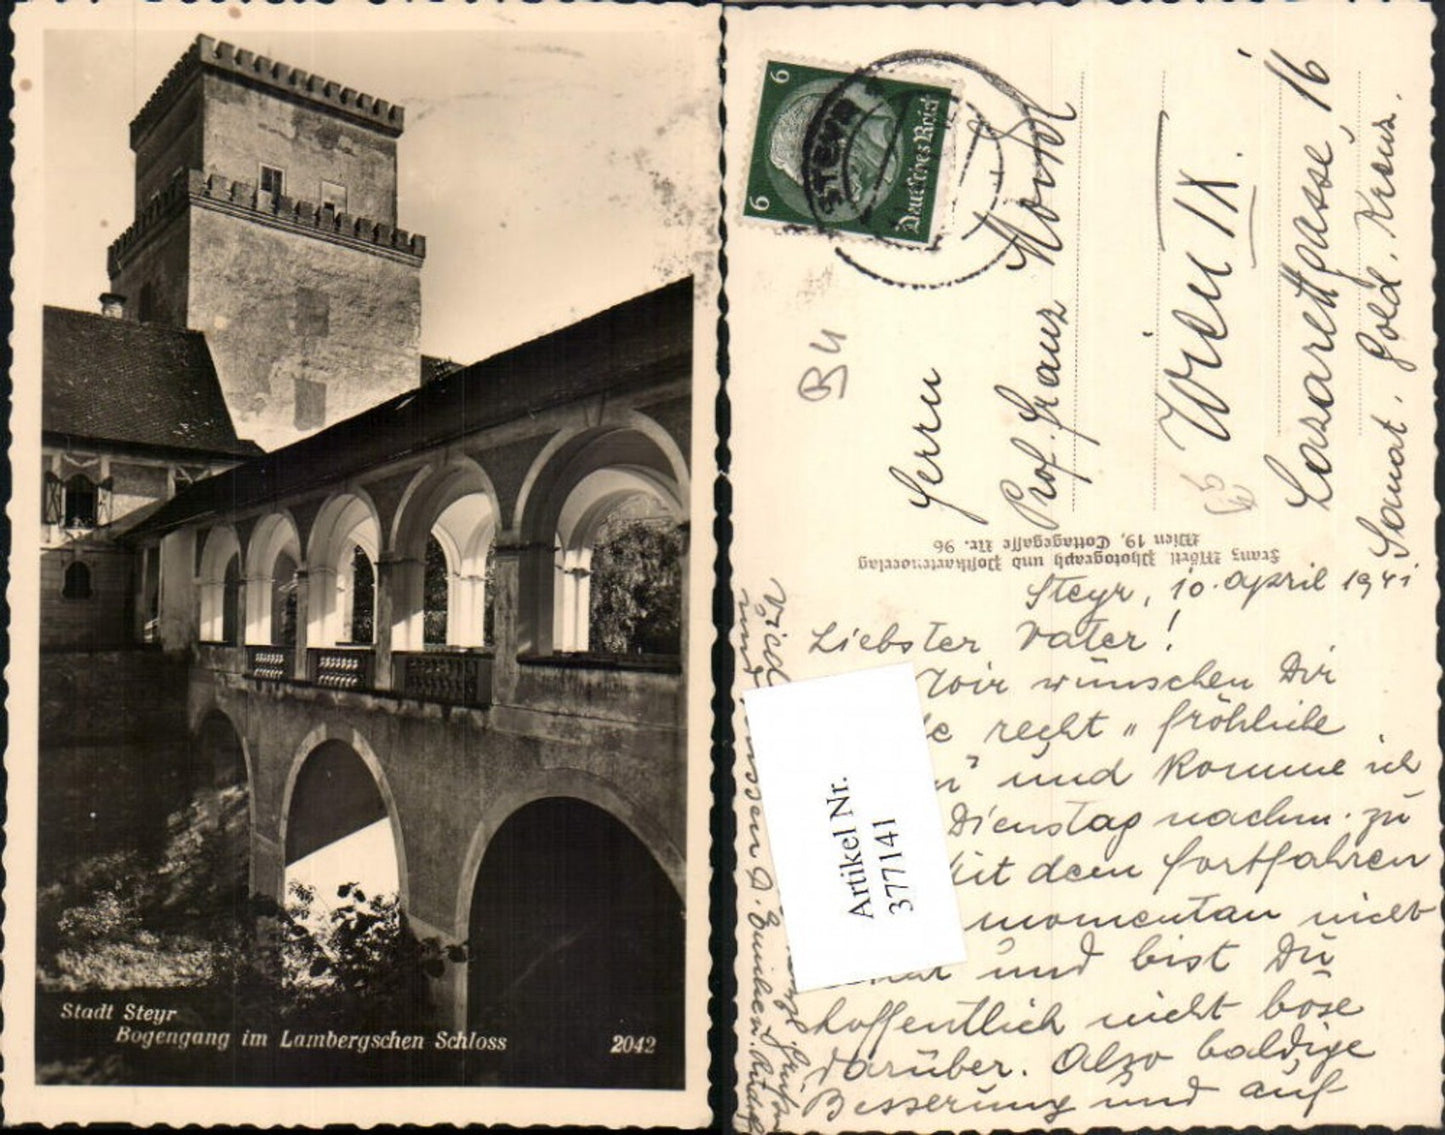 Stadt Steyr
Bogengang im Lambergschen Schloss
2042
6
6
Deutsches Reich
STEYR
B4
Herrn
Prof. Franz
Wien IX.
Lazarettgasse 16
Sanat. Gold. Kreuz.
Franz Mörtl Photograph und Postkartenverlag
Wien 19, Cottagegasse Nr. 96
Steyr, 10. April 1941
Liebster Vater!
Wir wünschen Dir
recht "fröhliche
und komme ich
Dienstag nachm. zu
Mit dem fortfahren
momentan nicht
und bist Du
hoffentlich nicht böse
darüber. Also baldige
Besserung und auf
Artikel Nr.
377141